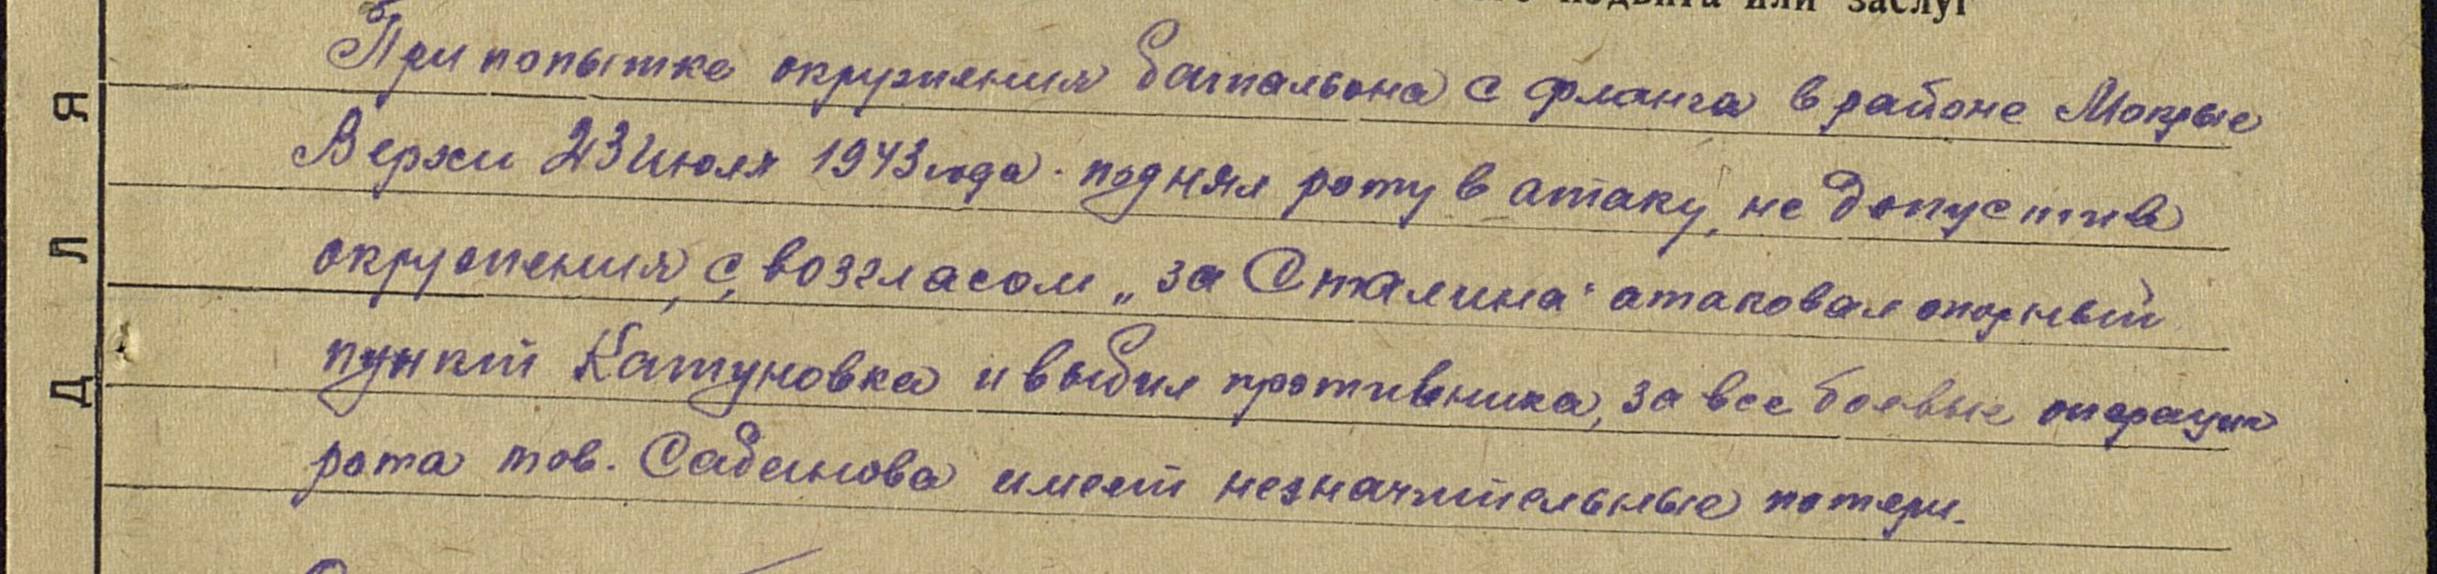 подвига или заслуг
При попытке окружения батальона с фланга в районе Мокрые
Верхи 23 июля 1943 года. поднял роту в атаку, не допустив
окружения, с возгласом „за Сталина" атаковал опорный
пункт Катуновка и выбил противника, за все боевые операции
рота тов. Сабанова имеет незначительные потери.
ДЛЯ